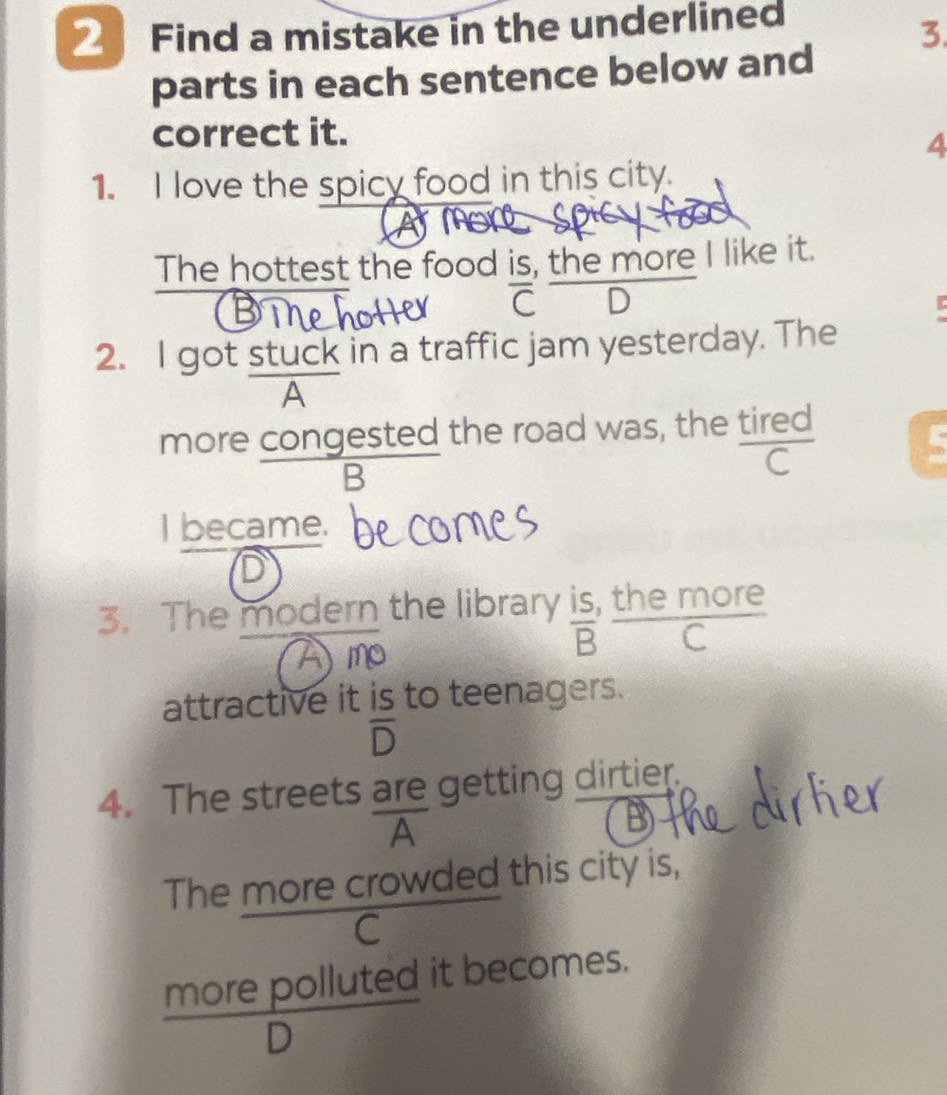 2 Find a mistake in the underlined
parts in each sentence below and
correct it.
3.
4
1. I love the spicy food in this city.
A more spicy food
The hottest the food is, the more I like it.
B The hotter C D
2. I got stuck in a traffic jam yesterday. The
A
more congested the road was, the tired
B C
I became. becomes
D
3. The modern the library is, the more
A mo B C
attractive it is to teenagers.
D
4. The streets are getting dirtier.
A B the dirtier
The more crowded this city is,
C
more polluted it becomes.
D
5
5